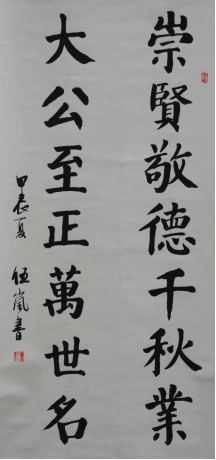 崇賢敬德千秋業
大公至正萬世名
甲辰夏 伍嵐書